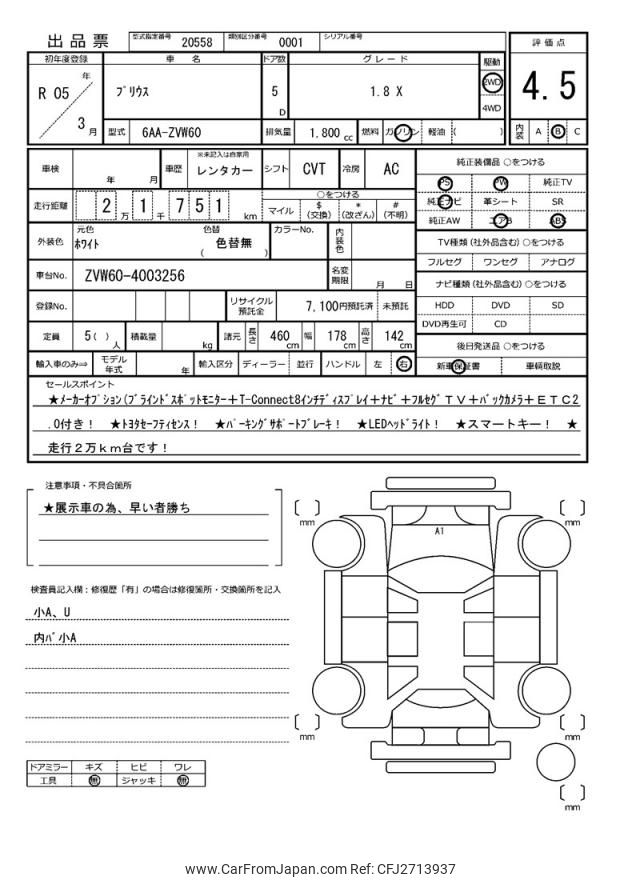 出品票 型式指定番号 20558 類別区分番号 0001 シリアル番号
評価点
4.5
初年度登録 車名 ドア数 グレード 駆動
R 05 年 3 月 プリウス 5 D 1.8 X 2WD 4WD
型式 6AA-ZVW60 排気量 1,800 cc 燃料 ガソリン 軽油 ( ) 内装 A B C
車検 年 月 車歴 ※未記入は自家用 レンタカー シフト CVT 冷房 AC
純正装備品 ○をつける
PS PW 純正TV
走行距離 2 万 1 千 7 5 1 km ○をつける マイル $ (交換) * (改ざん) # (不明)
純正ナビ 革シート SR
純正AW エアB ABS
外装色 元色 ホワイト 色替 ( 色替無 ) カラーNo. 内装色
TV種類 (社外品含む) ○をつける
フルセグ ワンセグ アナログ
車台No. ZVW60-4003256 名変期限 月 日
ナビ種類 (社外品含む) ○をつける
登録No. リサイクル預託金 7,100円預託済 未預託
HDD DVD SD
DVD再生可 CD
定員 5 ( ) 人 積載量 kg 諸元 長さ 460 cm 幅 178 cm 高さ 142 cm
後日発送品 ○をつける
輸入車のみ⇒ モデル年式 年 輸入区分 ディーラー 並行 ハンドル 左 右
新車保証書 車輌取説
セールスポイント
★メーカーオプション(ブラインドスポットモニター+T-Connect8インチディスプレイ+ナビ+フルセグTV+バックカメラ+ETC2
.0付き! ★トヨタセーフティセンス! ★パーキングサポートブレーキ! ★LEDヘッドライト! ★スマートキー! ★
走行2万km台です!
注意事項・不具合箇所
★展示車の為、早い者勝ち
検査員記入欄:修復歴「有」の場合は修復箇所・交換箇所を記入
小A、U
内バ小A
ドアミラー キズ ヒビ ワレ
工具 無 ジャッキ 無
mm
mm
A1
mm
mm
mm
www.CarFromJapan.com Ref: CFJ2713937